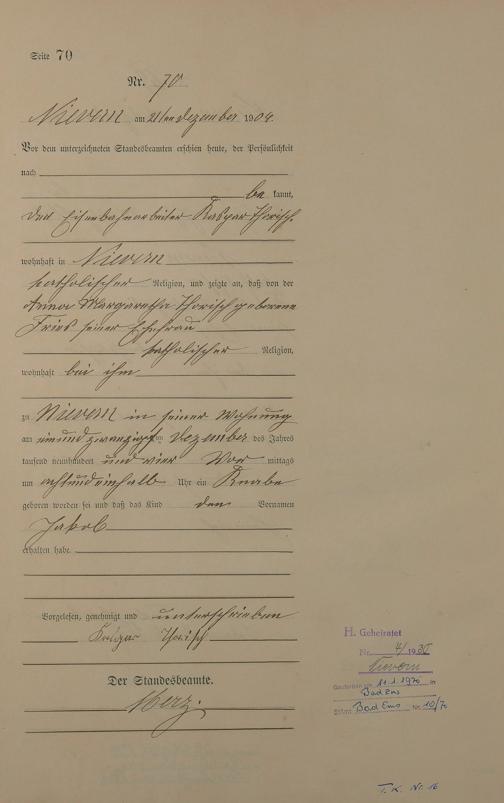 Seite 70
Nr. 70
Nievern am 21ten Dezember 1904.
Vor dem unterzeichneten Standesbeamten erschien heute, der Persönlichkeit
nach
be kannt,
der Eisenbahnarbeiter Kaspar Thorisch,
wohnhaft in Nievern
katholischer Religion, und zeigte an, daß von der
Anna Margaretha Thorisch geborene
Fries seiner Ehefrau
katholischer Religion,
wohnhaft bei ihm
zu Nievern in seiner Wohnung
am einundzwanzigsten Dezember des Jahres
tausend neunhundert und vier Vor mittags
um achtundeinhalb Uhr ein Knabe
geboren worden sei und daß das Kind den Vornamen
Jakob
erhalten habe.
Vorgelesen, genehmigt und unterschrieben
Thorisch
Der Standesbeamte.
Merz.
H. Geheiratet
Nr. 4/19
Nievern
Gestorben am 11.1.1970 in
Bad Ems
Bad Ems Nr. 10/70
T.K. Nr. 16